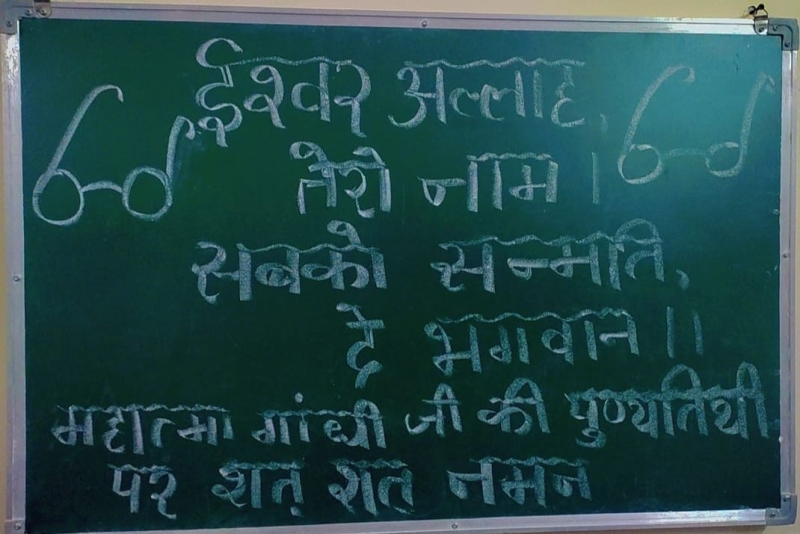 ईश्वर अल्लाह,
तेरो नाम ।
सबको सन्मति,
दे भगवान ।।
महात्मा गांधी जी की पुण्यतिथी
पर शत् शत् नमन